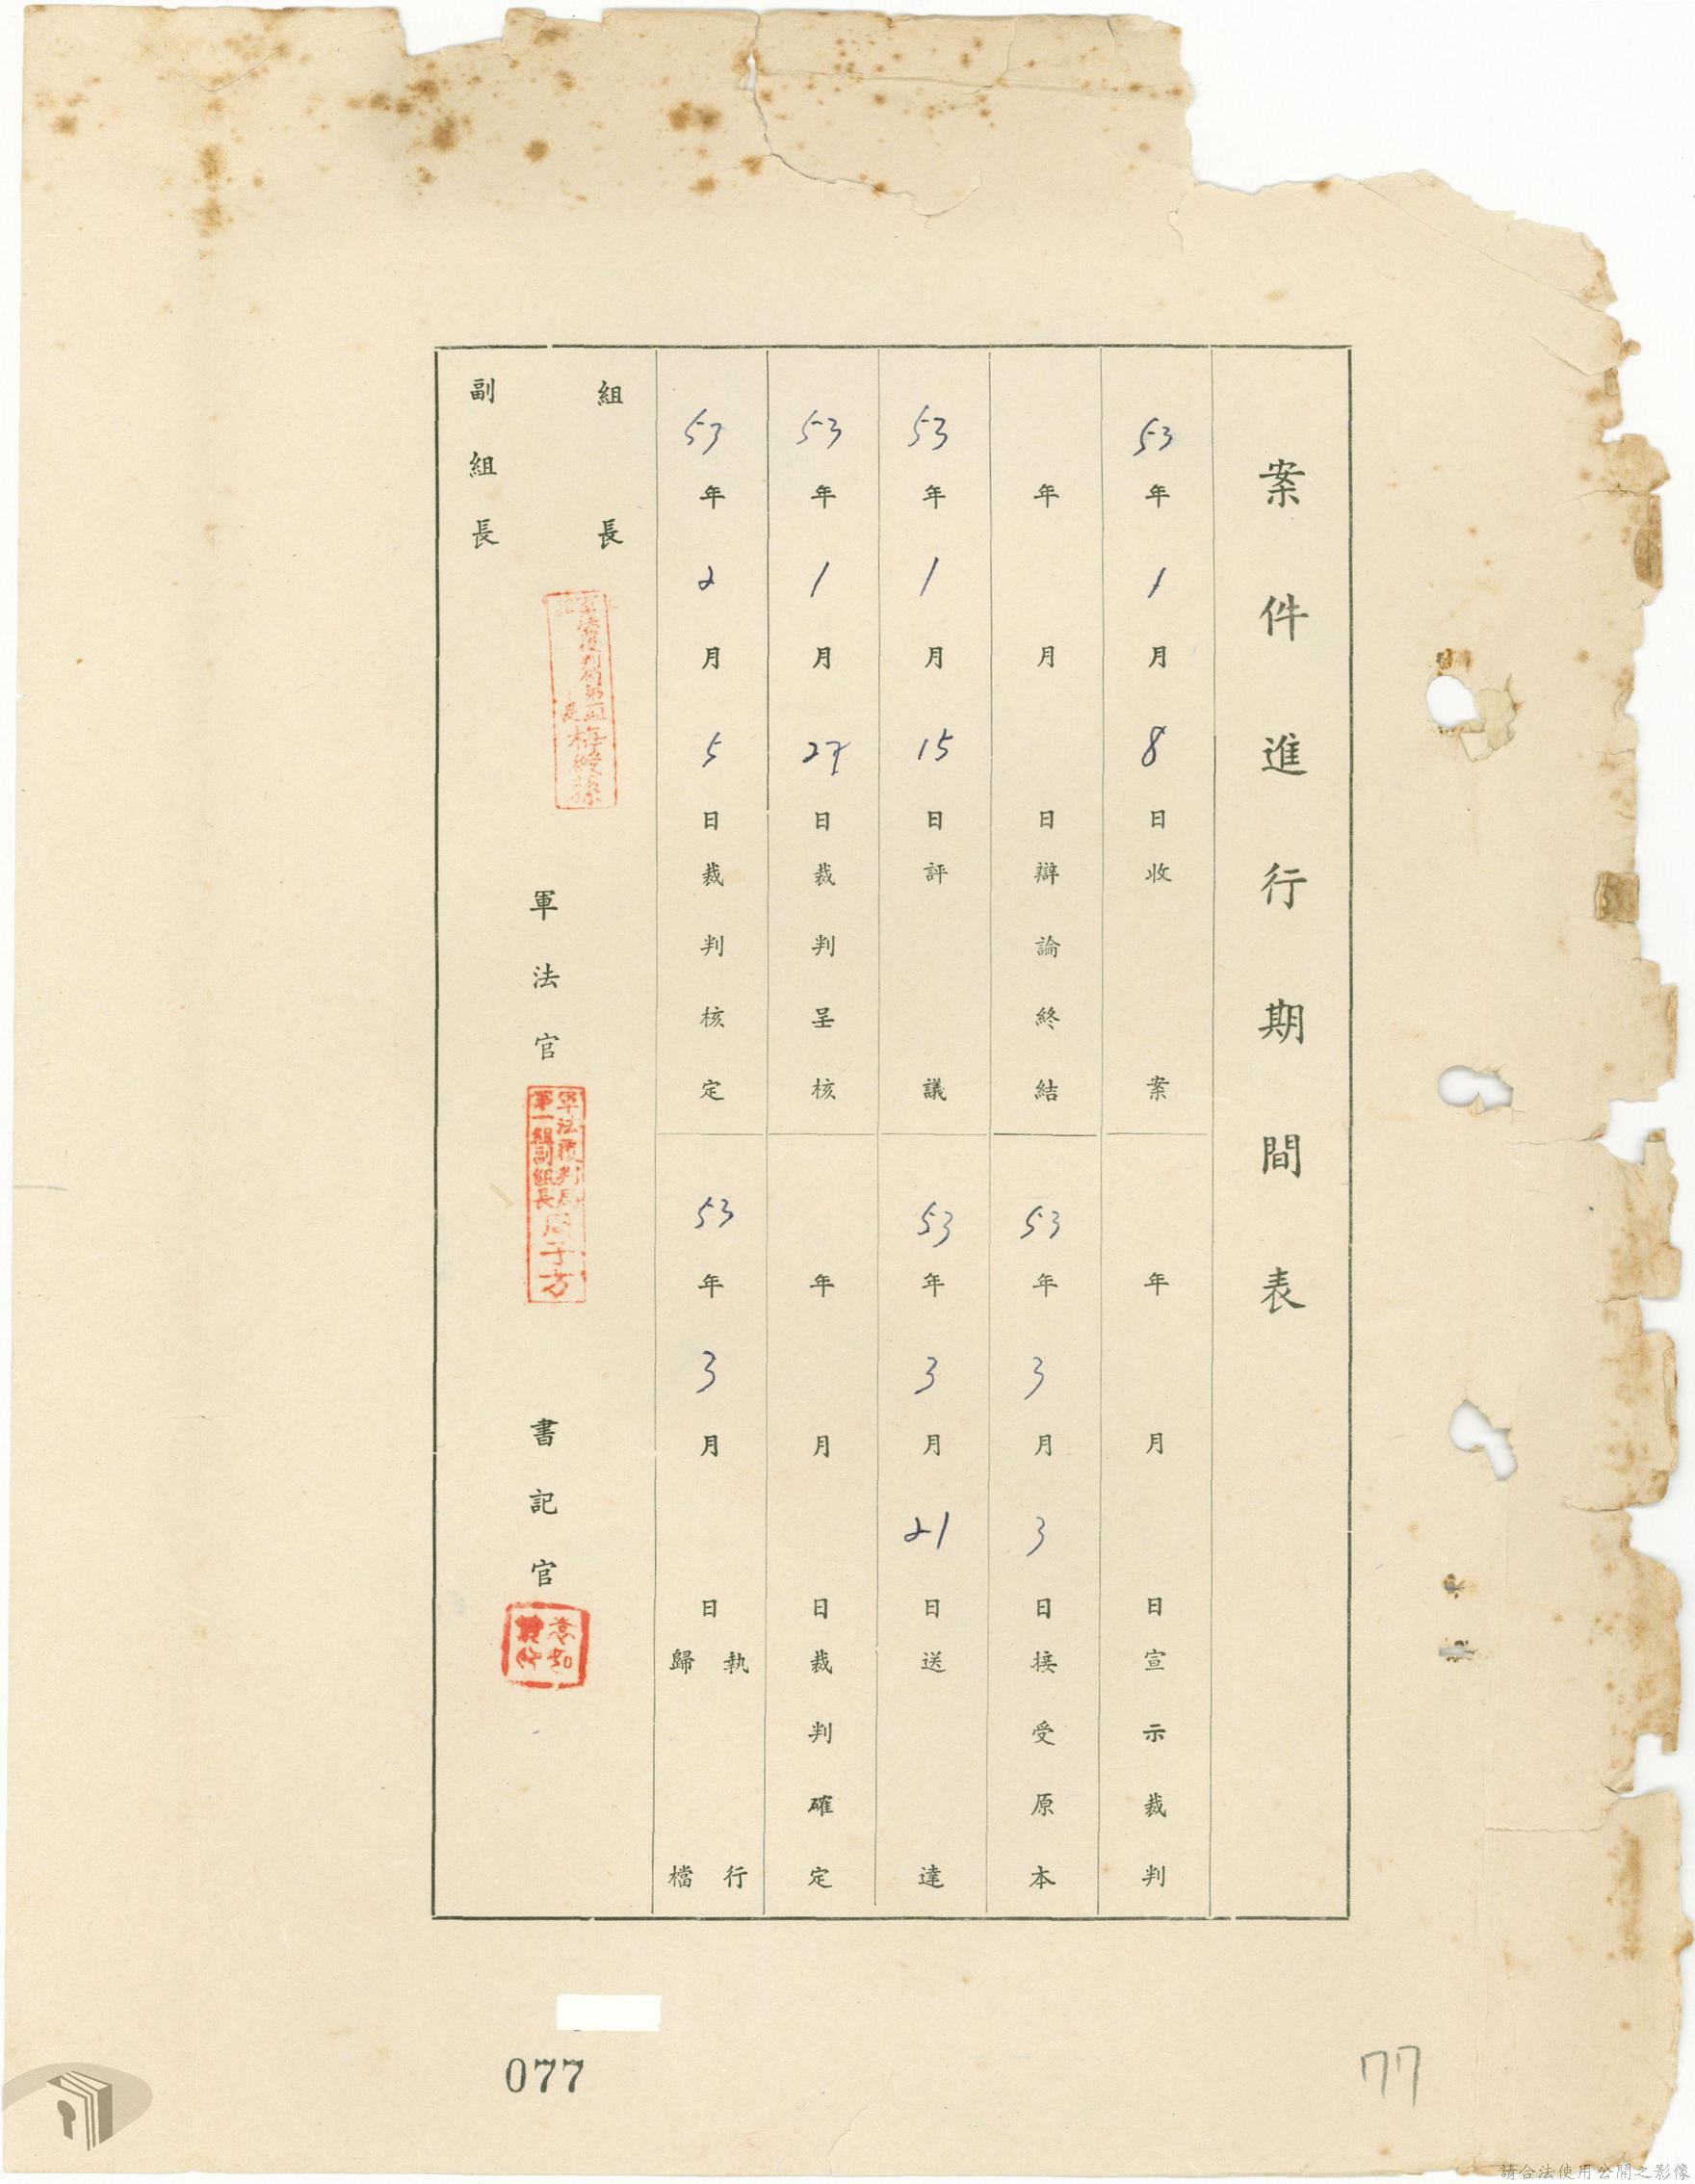 案件進行期間表
53年1月8日收案
年月日宣示裁判
年月日辯論終結
53年3月3日接受原本
53年1月15日評議
53年3月21日送達
53年1月27日裁判呈核
年月日裁判確定
53年2月5日裁判核定
53年3月日執行
歸檔
組長
副組長
軍法官
軍法覆判局
第一組副組長
周子方
書記官
077
77
請合法使用公開之影像